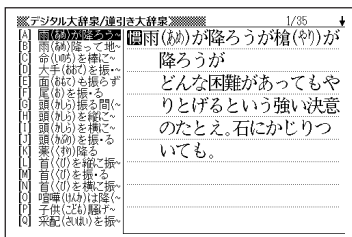 デジタル大辞泉/逆引き大辞泉
1/35
[A] 雨(あめ)が降ろう~
[B] 雨(あめ)降って地~
[C] 命(いのち)を棒に~
[D] 大手(おおで)を振・~
[E] 面(おもて)も振らず
[F] 尾(お)を振・る
[G] 頭(かしら)振る間(~
[H] 頭(かしら)を縦に~
[I] 頭(かしら)を横に~
[J] 頭(かぶり)を振・る
[K] 薬(くすり)降る
[L] 首(くび)を縦に振~
[M] 首(くび)を振・る
[N] 首(くび)を横に振~
[O] 喧嘩(けんか)は降(~
[P] 子供(こども)騙げ~
[Q] 采配(さいはい)を振~
慣雨(あめ)が降ろうが槍(やり)が
降ろうが
どんな困難があってもや
りとげるという強い決意
のたとえ。石にかじりつ
いても。